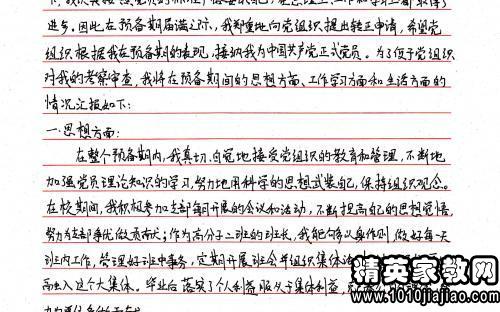 进步,因此在预备期届满之际,我郑重地向党组织提出转正申请,希望党
组织根据我在预备期的表现,接纳我为中国共产党正式党员。为了便于党组织
对我的考察审查,我将在预备期间的思想方面、工作学习方面和生活方面的
情况汇报如下:
一.思想方面:
在整个预备期内,我真切、自觉地接受党组织的教育和管理,不断地
加强党员理论知识的学习,努力地用科学的思想武装自己,保持组织观念。
在校期间,我积极参加支部每月开展的会议和活动,不断提高自己的思想觉悟,
努力为支部事优做贡献;作为高分子二班的班长,我能够以身作则做好每一天
班内工作,管理好班中事务,定期开展班会并组织集体活
而融入这个大集体。毕业后落实了个人利益服从于集体利益,
精英家教网
www.1010jiajiao.com